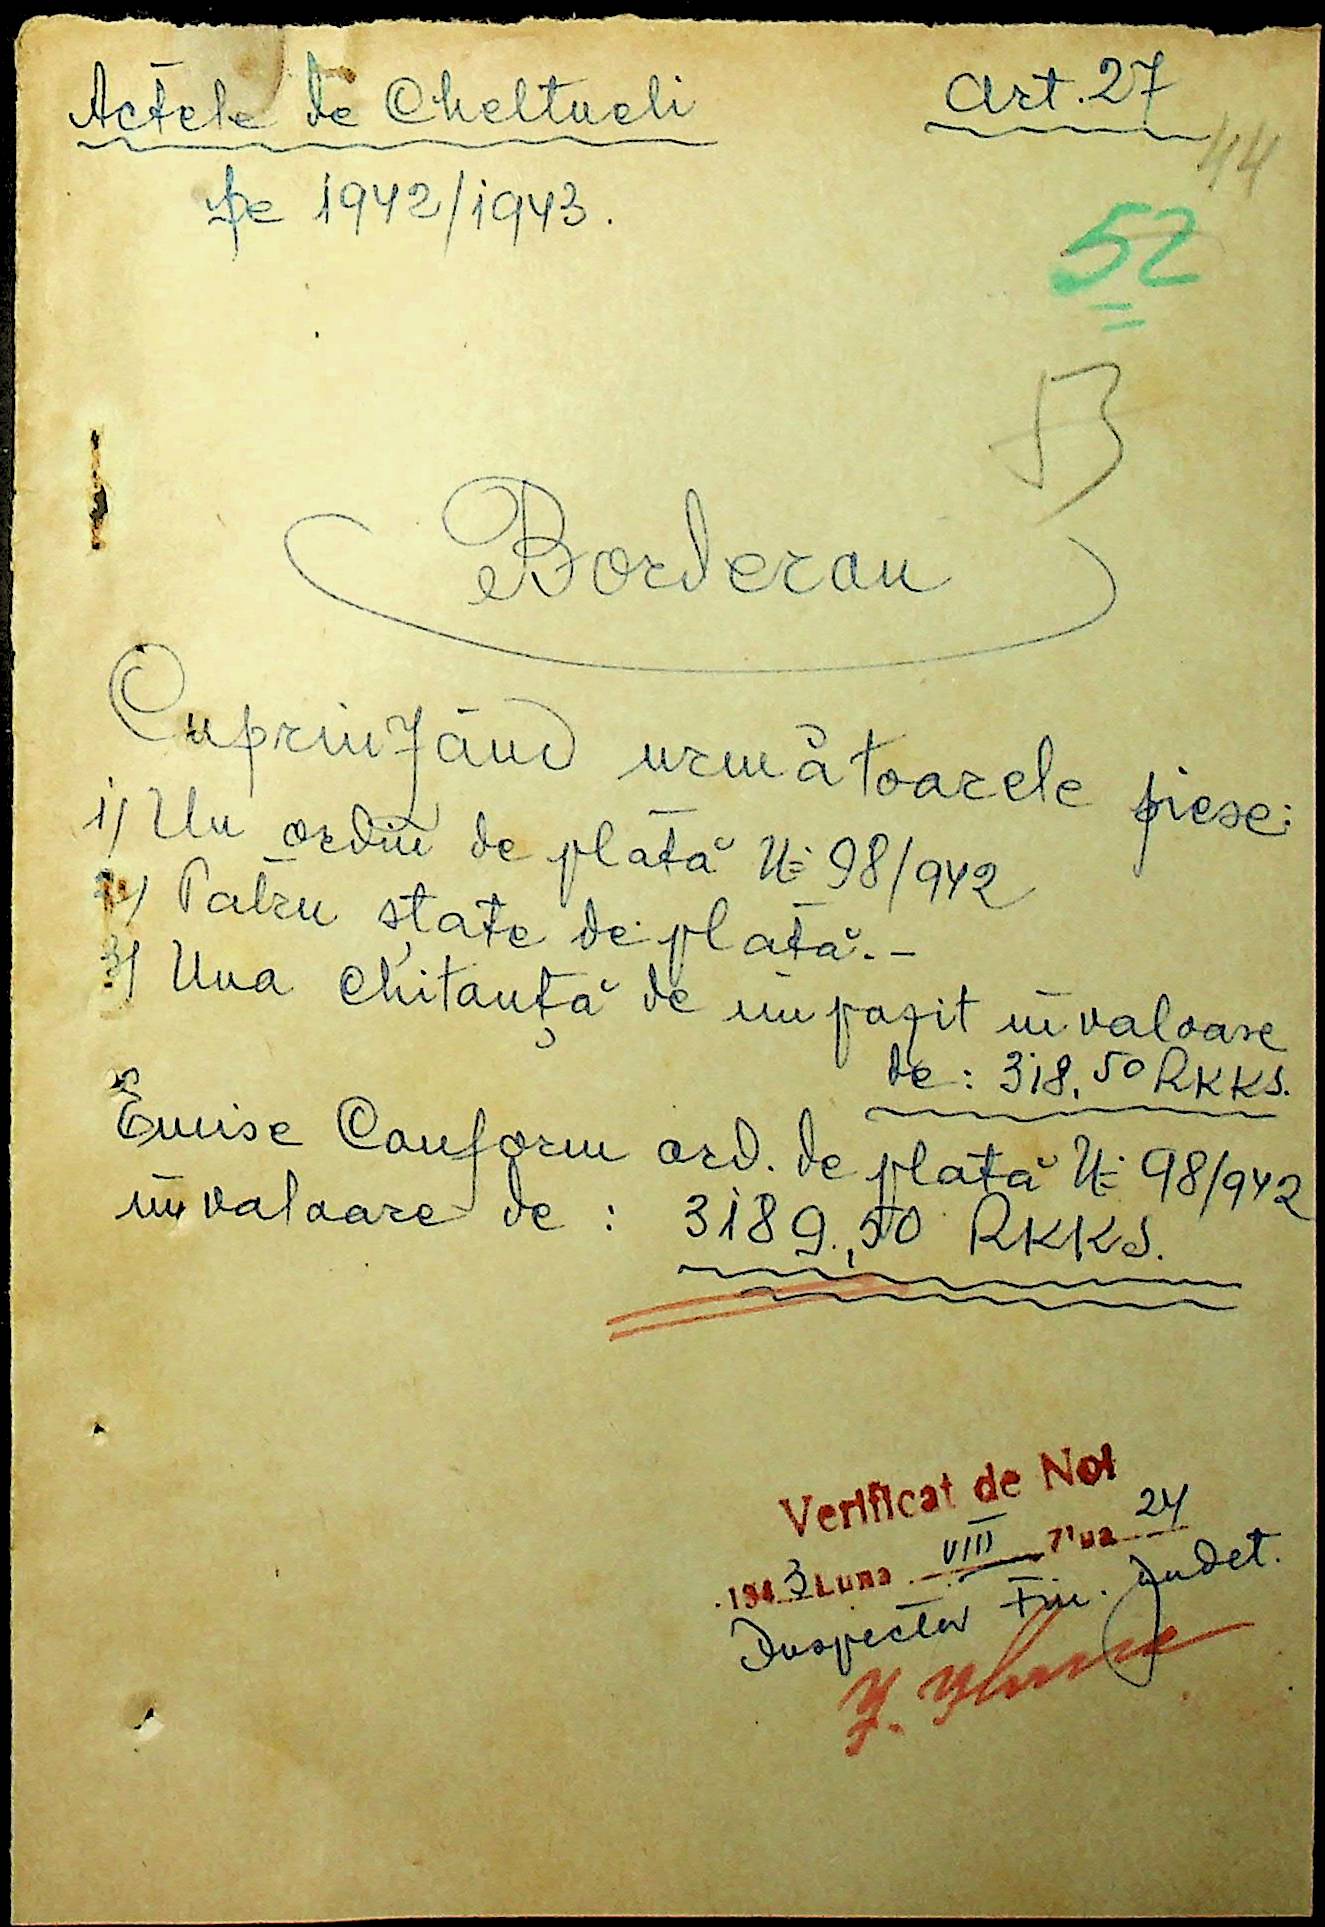 Actele de Cheltueli Art. 27
44
pe 1942/1943.
52
53
Borderau
Cuprinzând următoarele piese:
1) Un ordin de plată No 98/942
2) Patru state de plată. –
3) Una chitanță de impozit în valoare
de: 318,50 RKKS.
Emise Conform ord. de plată No 98/942
în valoare de : 3189,50 RKKS.
Verificat de Noi
1943 Luna VIII Ziua 24
Inspector Fin. Judet.